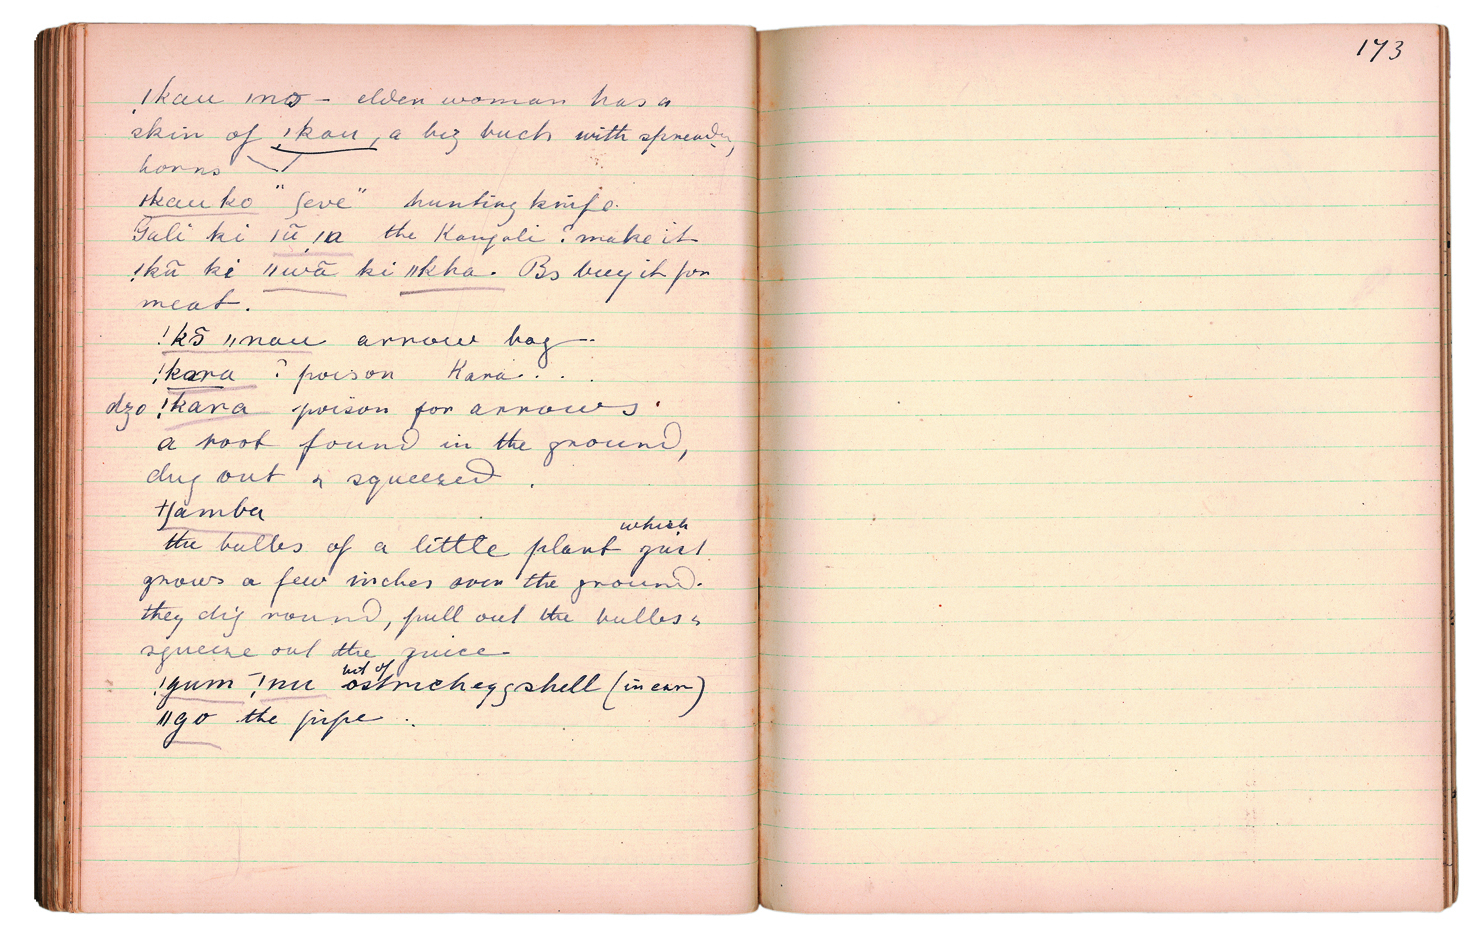 !kau ǀno – elder woman has a
skin of ǃkau, a big buck with spready,
horns
ǀkau ko "ſeve" hunting knife.
Gali ki ǀū ǀna the Kangali ? make it
!kā ki ǁwā ki ǁkha. Bs buy it for
meat.
!kō ǁnau arrow bag –
!kara ? poison Kara . . .
dzo !kara poison for arrows.
a root found in the ground,
dug out & squeezed .
ǂjamba
which
the bulbs of a little plant just
grows a few inches over the ground.
they dig round, pull out the bulbs &
squeeze out the juice
bit of
!gum – !nu ostricheggshell (in ear)
ǁgo the pipe .
173